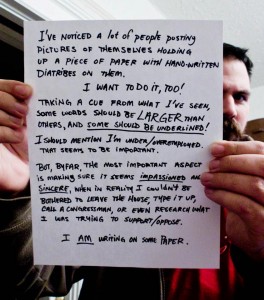 I'VE NOTICED A LOT OF PEOPLE POSTING
PICTURES OF THEMSELVES HOLDING
UP A PIECE OF PAPER WITH HAND-WRITTEN
DIATRIBES ON THEM.
I WANT TO DO IT, TOO!
TAKING A CUE FROM WHAT I'VE SEEN,
SOME WORDS SHOULD BE LARGER THAN
OTHERS, AND SOME SHOULD BE UNDERLINED!
I SHOULD MENTION I'M UNDER/OVEREMPLOYED.
THAT SEEMS TO BE IMPORTANT.
BUT, BY FAR, THE MOST IMPORTANT ASPECT
IS MAKING SURE IT SEEMS IMPASSIONED AND
SINCERE, WHEN IN REALITY I COULDN'T BE
BOTHERED TO LEAVE THE HOUSE, TYPE IT UP,
CALL A CONGRESSMAN, OR EVEN RESEARCH WHAT
I WAS TRYING TO SUPPORT/OPPOSE.
I AM WRITING ON SOME PAPER.